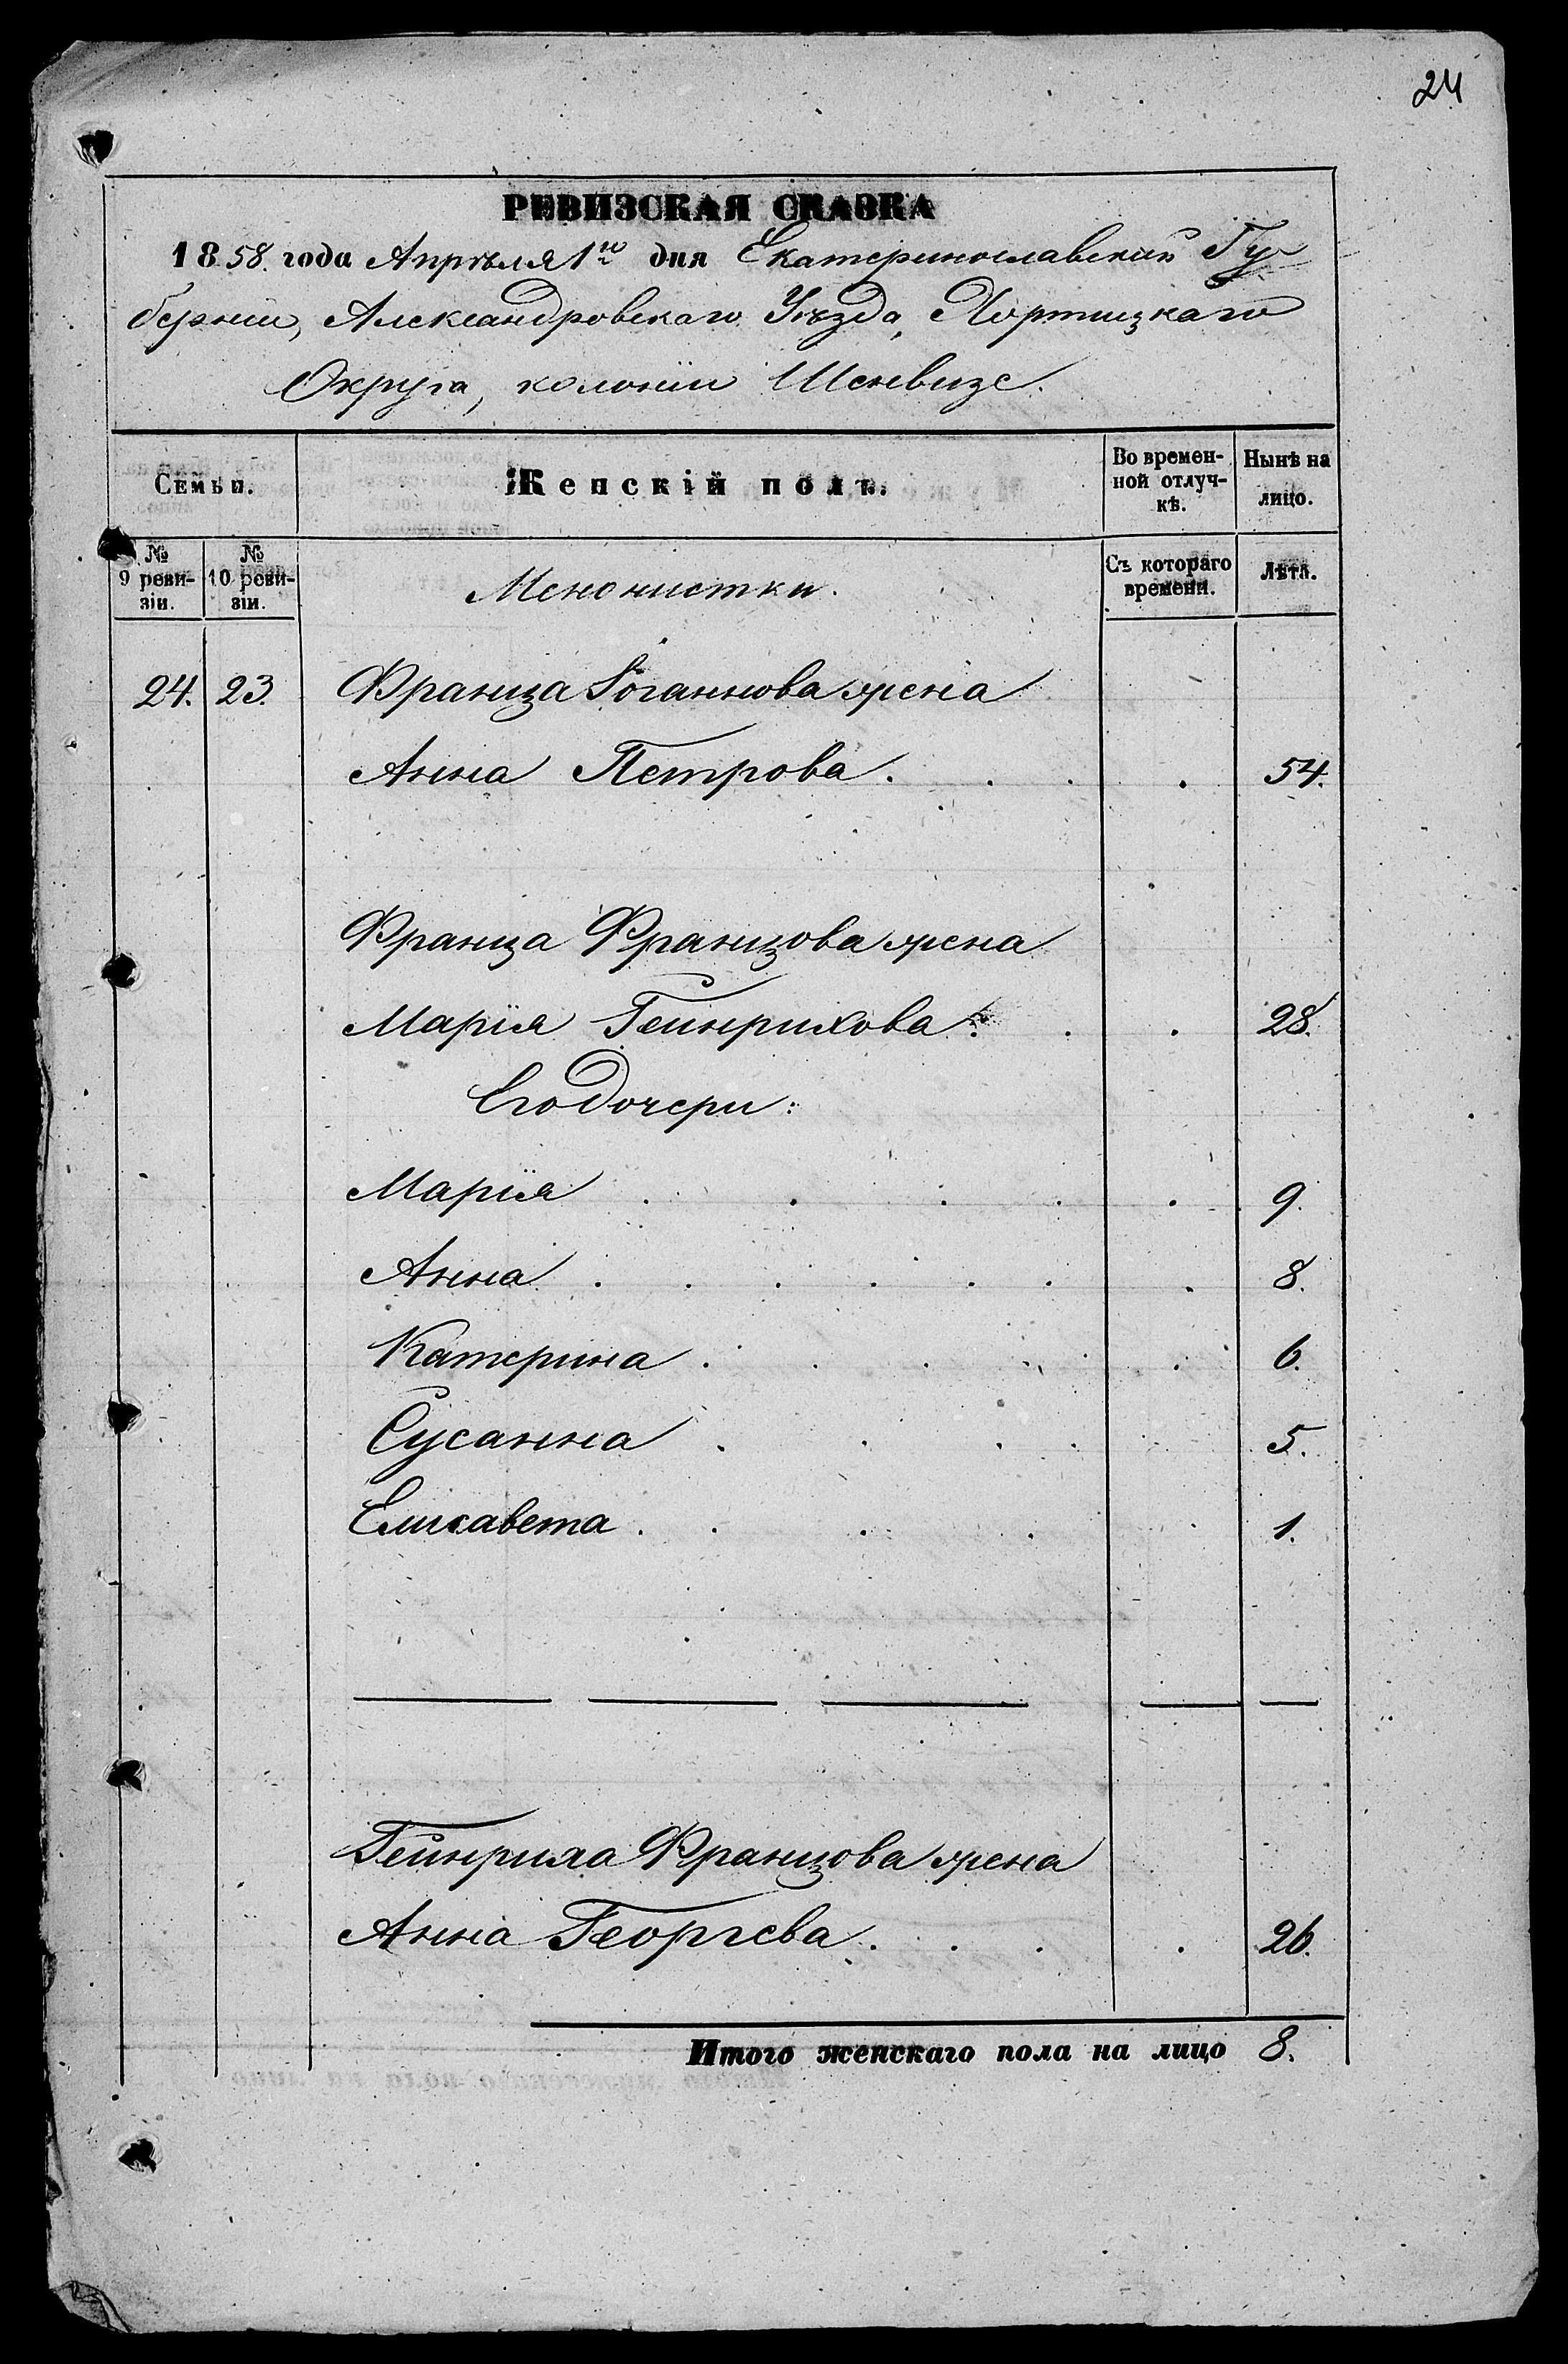 24
РЕВИЗСКАЯ СКАЗКА
1858. года Апрѣля 1го дня Екатеринославской Гу-
берніи, Александровскаго Уѣзда, Хортицкаго
Округа, колоніи Шенвизе.
Семьи. Женскій полъ. Во времен-ной отлуч-кѣ. Нынѣ на лицо.
№ 9 реви-зіи. № 10 реви-зіи. Менонистки. Съ котораго времени. Лѣта.
24. 23. Франца Іоганнова жена
Анна Петрова. 54.
Франца Францова жена
Марія Гейнрихова. 28.
Его дочери:
Марія 9.
Анна 8.
Катерина 6.
Сусанна 5.
Елисавета 1.
Гейнриха Францова жена
Анна Георгева 26.
Итого женскаго пола на лицо 8.